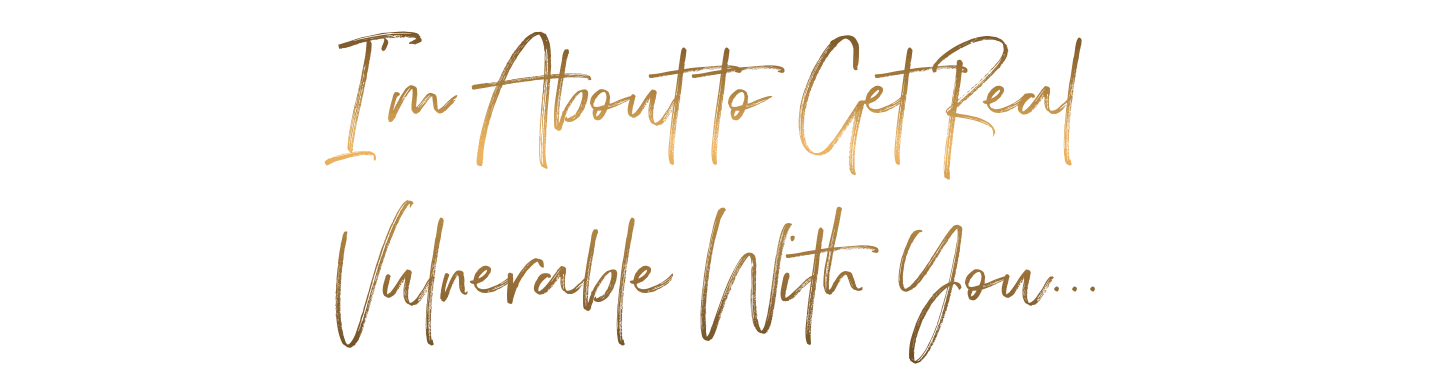 I'm About to Get Real
Vulnerable With You...